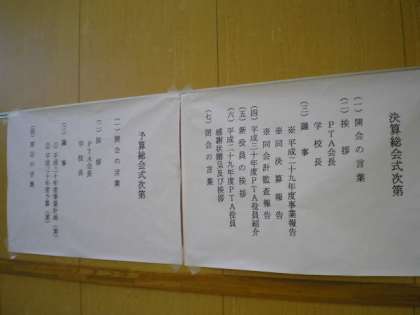 決算総会式次第
(一) 開会の言葉
(二) 挨拶
PTA会長
学校長
(三) 議事
※平成二十九年度事業報告
※同決算報告
※同会計監査報告
(四) 平成三十年度PTA役員紹介
(五) 新役員の挨拶
(六) 平成二十九年度PTA役員
感謝状贈呈及び挨拶
(七) 閉会の言葉
予算総会式次第
(一) 開会の言葉
(二) 挨拶
PTA会長
学校長
(三) 議事
平成三十年度事業計画(案)
平成三十年度予算(案)
(四) 閉会の言葉